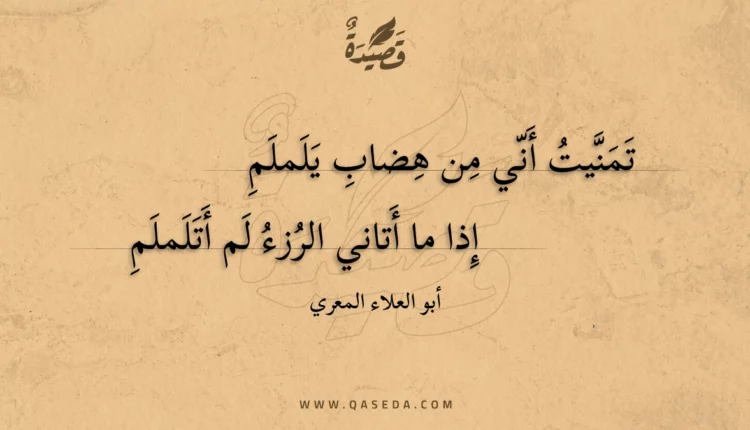 قَصِيْدَةٌ
تَمَنَّيتُ أَنّي مِن هِضابِ يَلَملَمِ
إِذا ما أَتاني الرُزءُ لَم أَتَلَملَمِ
أبو العلاء المعري
WWW.QASEDA.COM